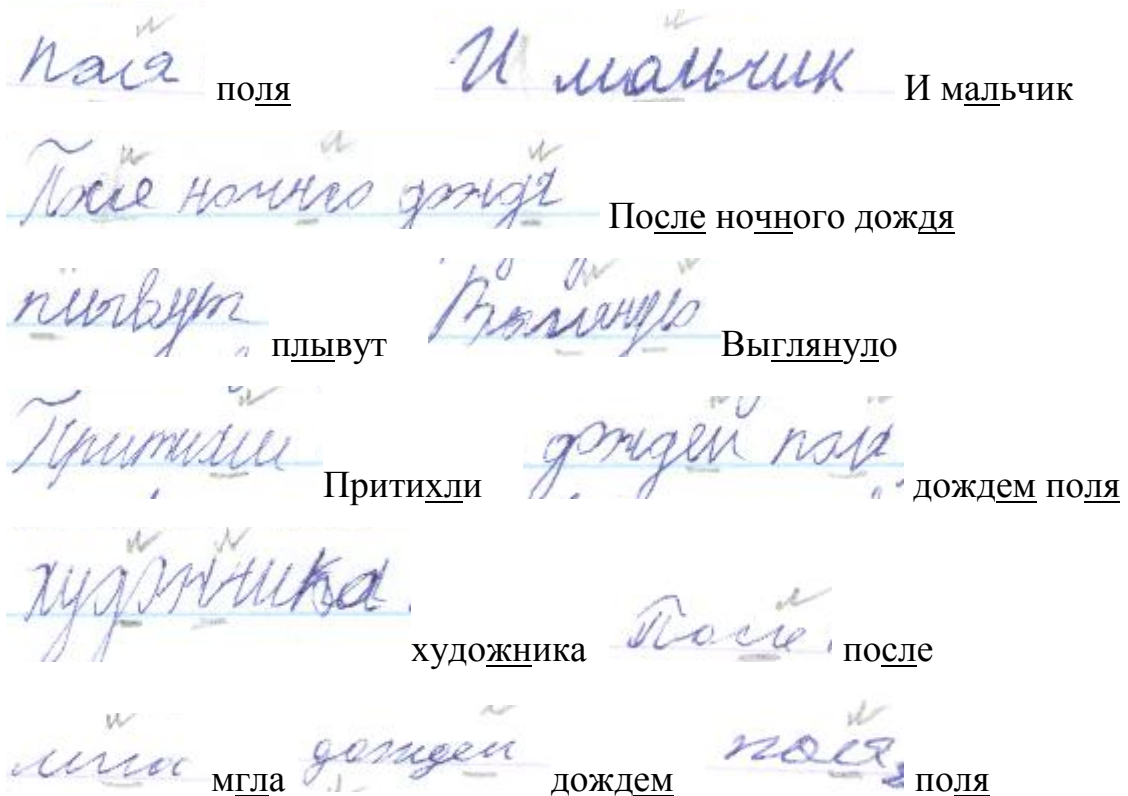 поля поля И мальчик И мальчик
После ночного дождя После ночного дождя
плывут плывут Выглянуло Выглянуло
Притихли Притихли дождем поля дождем поля
художника художника После после
мгла мгла дождем дождем поля поля